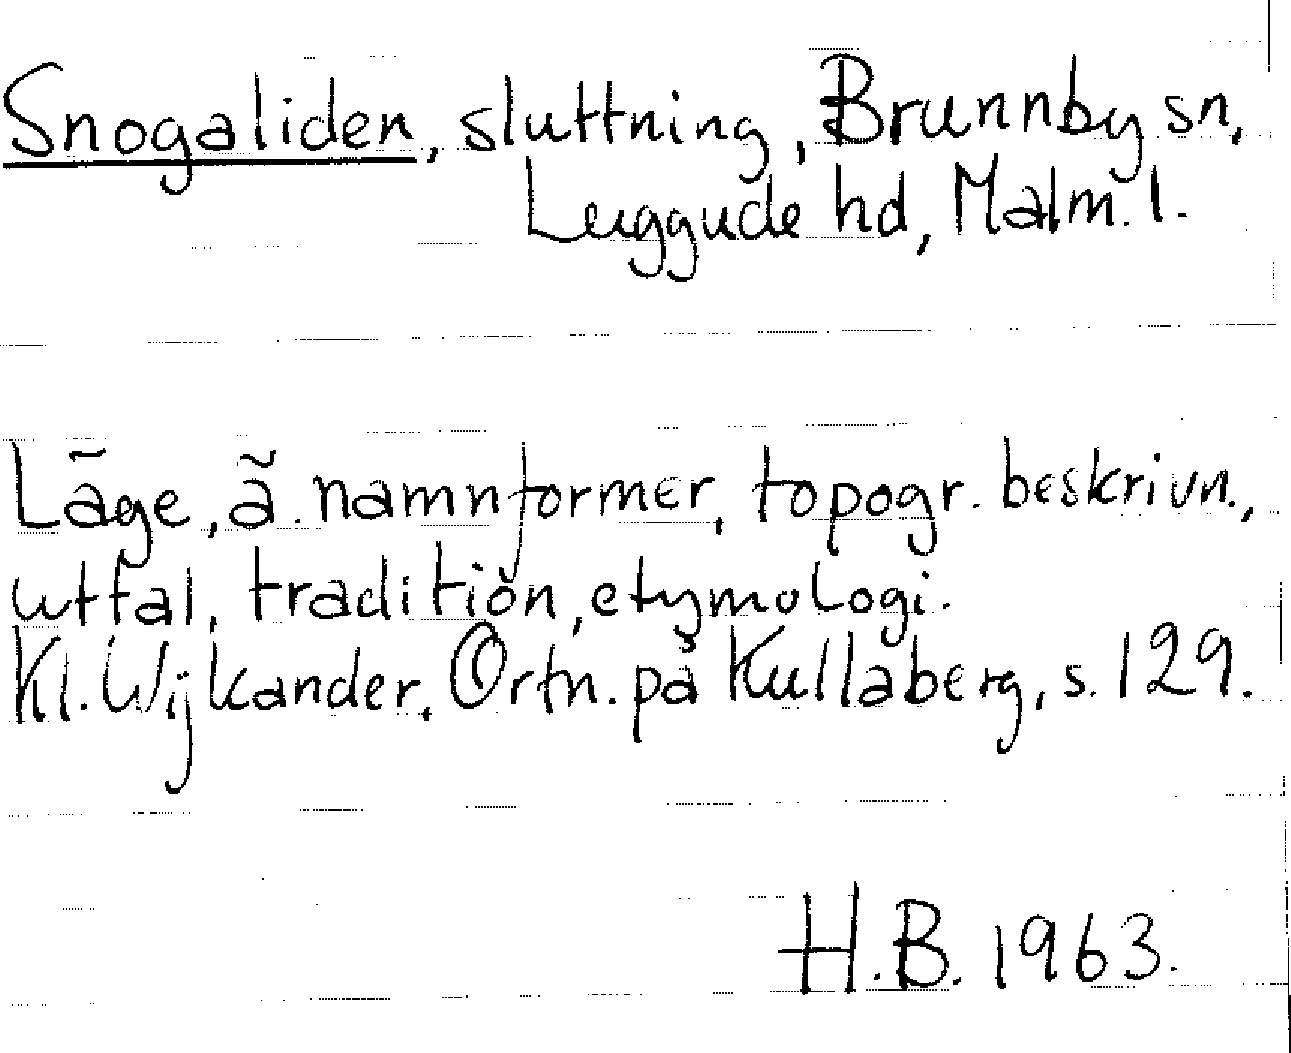 Snogaliden, sluttning, Brunnby sn,
Luggude hd, Malm. l.
Läge, ä. namnformer, topogr. beskrivn.,
uttal, tradition, etymologi.
Kl. Wijkander, Ortn. på Kullaberg, s. 129.
H.B. 1963.